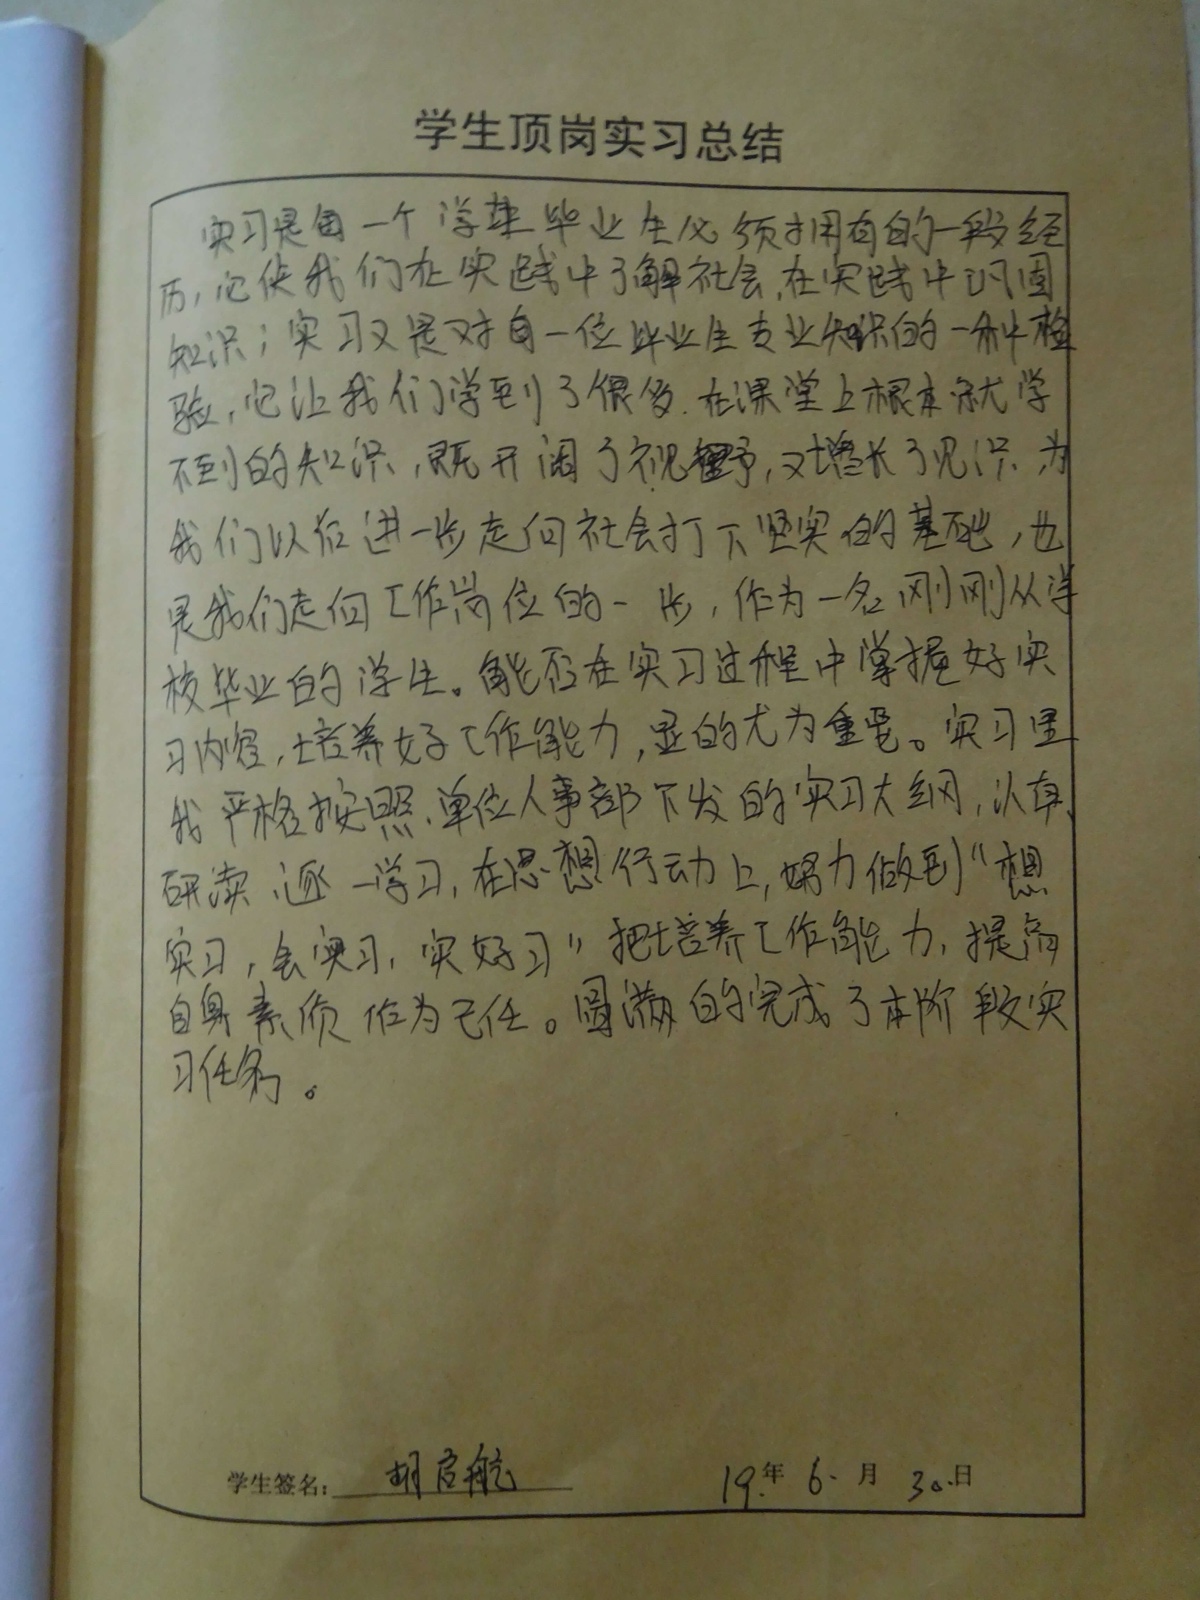 学生顶岗实习总结
实习是每一个学生毕业生必须拥有的一段经
历,它使我们在实践中了解社会,在实践中巩固
知识;实习又是对每一位毕业生专业知识的一种检
验,它让我们学到了很多.在课堂上根本就学
不到的知识,既开阔了视野,又增长了见识.为
我们以后进一步走向社会打下坚实的基础,也
是我们走向工作岗位的一步,作为一名刚刚从学
校毕业的学生。能否在实习过程中掌握好实
习内容,培养好工作能力,显的尤为重要。实习里
我严格按照.单位人事部下发的实习大纲,认真、
研读、逐一学习,在思想行动上,努力做到“想
实习,会实习,实好习”把培养工作能力,提高
自身素质作为己任。圆满的完成了本阶段实
习任务。
学生签名: 胡启航 19.年 6.月 30.日